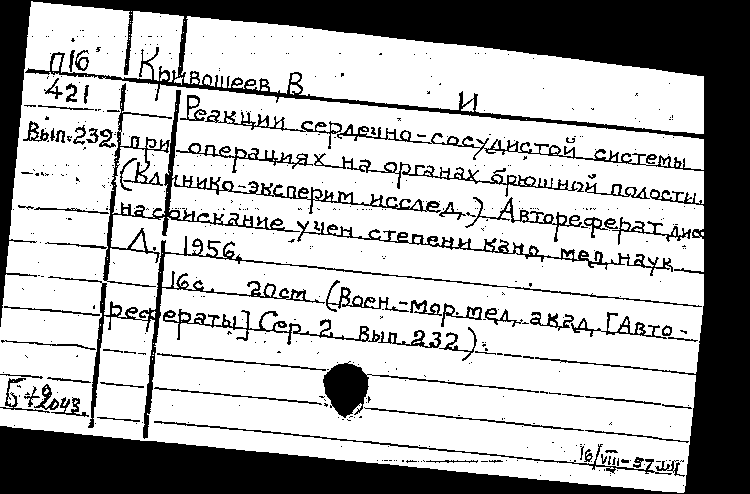 П16 Кривошеев, В. И
421 Реакции сердечно-сосудистой системы
Вып.232 при операциях на органах брюшной полости.
(Клинико-эксперим исслед.) Автореферат дисс
на соискание учен степени канд. мед. наук
Л., 1956.
16с. 20см. (Воен.-мор. мед. акад. [Авто-
рефераты] Сер. 2 Вып. 232).
16/VIII-57